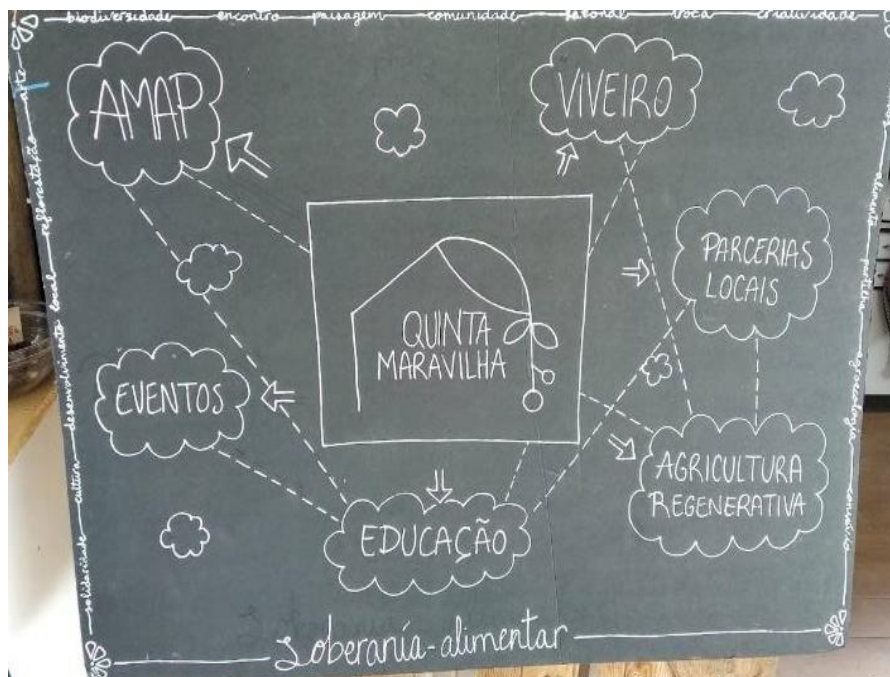 biodiversidade encontro paisagem comunidade sazonal troca criatividade
AMAP
VIVEIRO
PARCERIAS
LOCAIS
QUINTA
MARAVILHA
EVENTOS
AGRICULTURA
REGENERATIVA
EDUCAÇÃO
solidariedade cultura desenvolvimento local reflorestação arte
alimento partilha agroecologia
Soberanía-alimentar